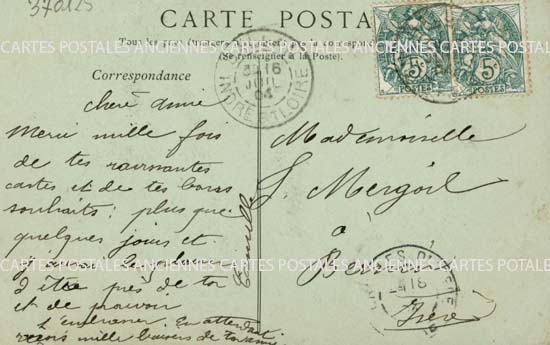 370125
CARTE POSTALE
(Se renseigner à la Poste).
Correspondance
chère amie
Merci mille fois
de tes ravissantes
cartes et de tes bons
souhaits; plus que
quelques jours et
j'aurai le plaisir
d'être près de toi
et de pouvoir
t'embrasser. En attendant
reçois mille baisers de ton amie
Mademoiselle
S. Mergoil
à
Isère
INDRE ET LOIRE
16
JUIL
04
5c
POSTES
5c
POSTES
CARTES POSTALES ANCIENNES CARTES POSTALES ANCIENNES CARTES POSTALES
CARTES POSTALES ANCIENNES CARTES POSTALES ANCIENNES CARTES POTALES